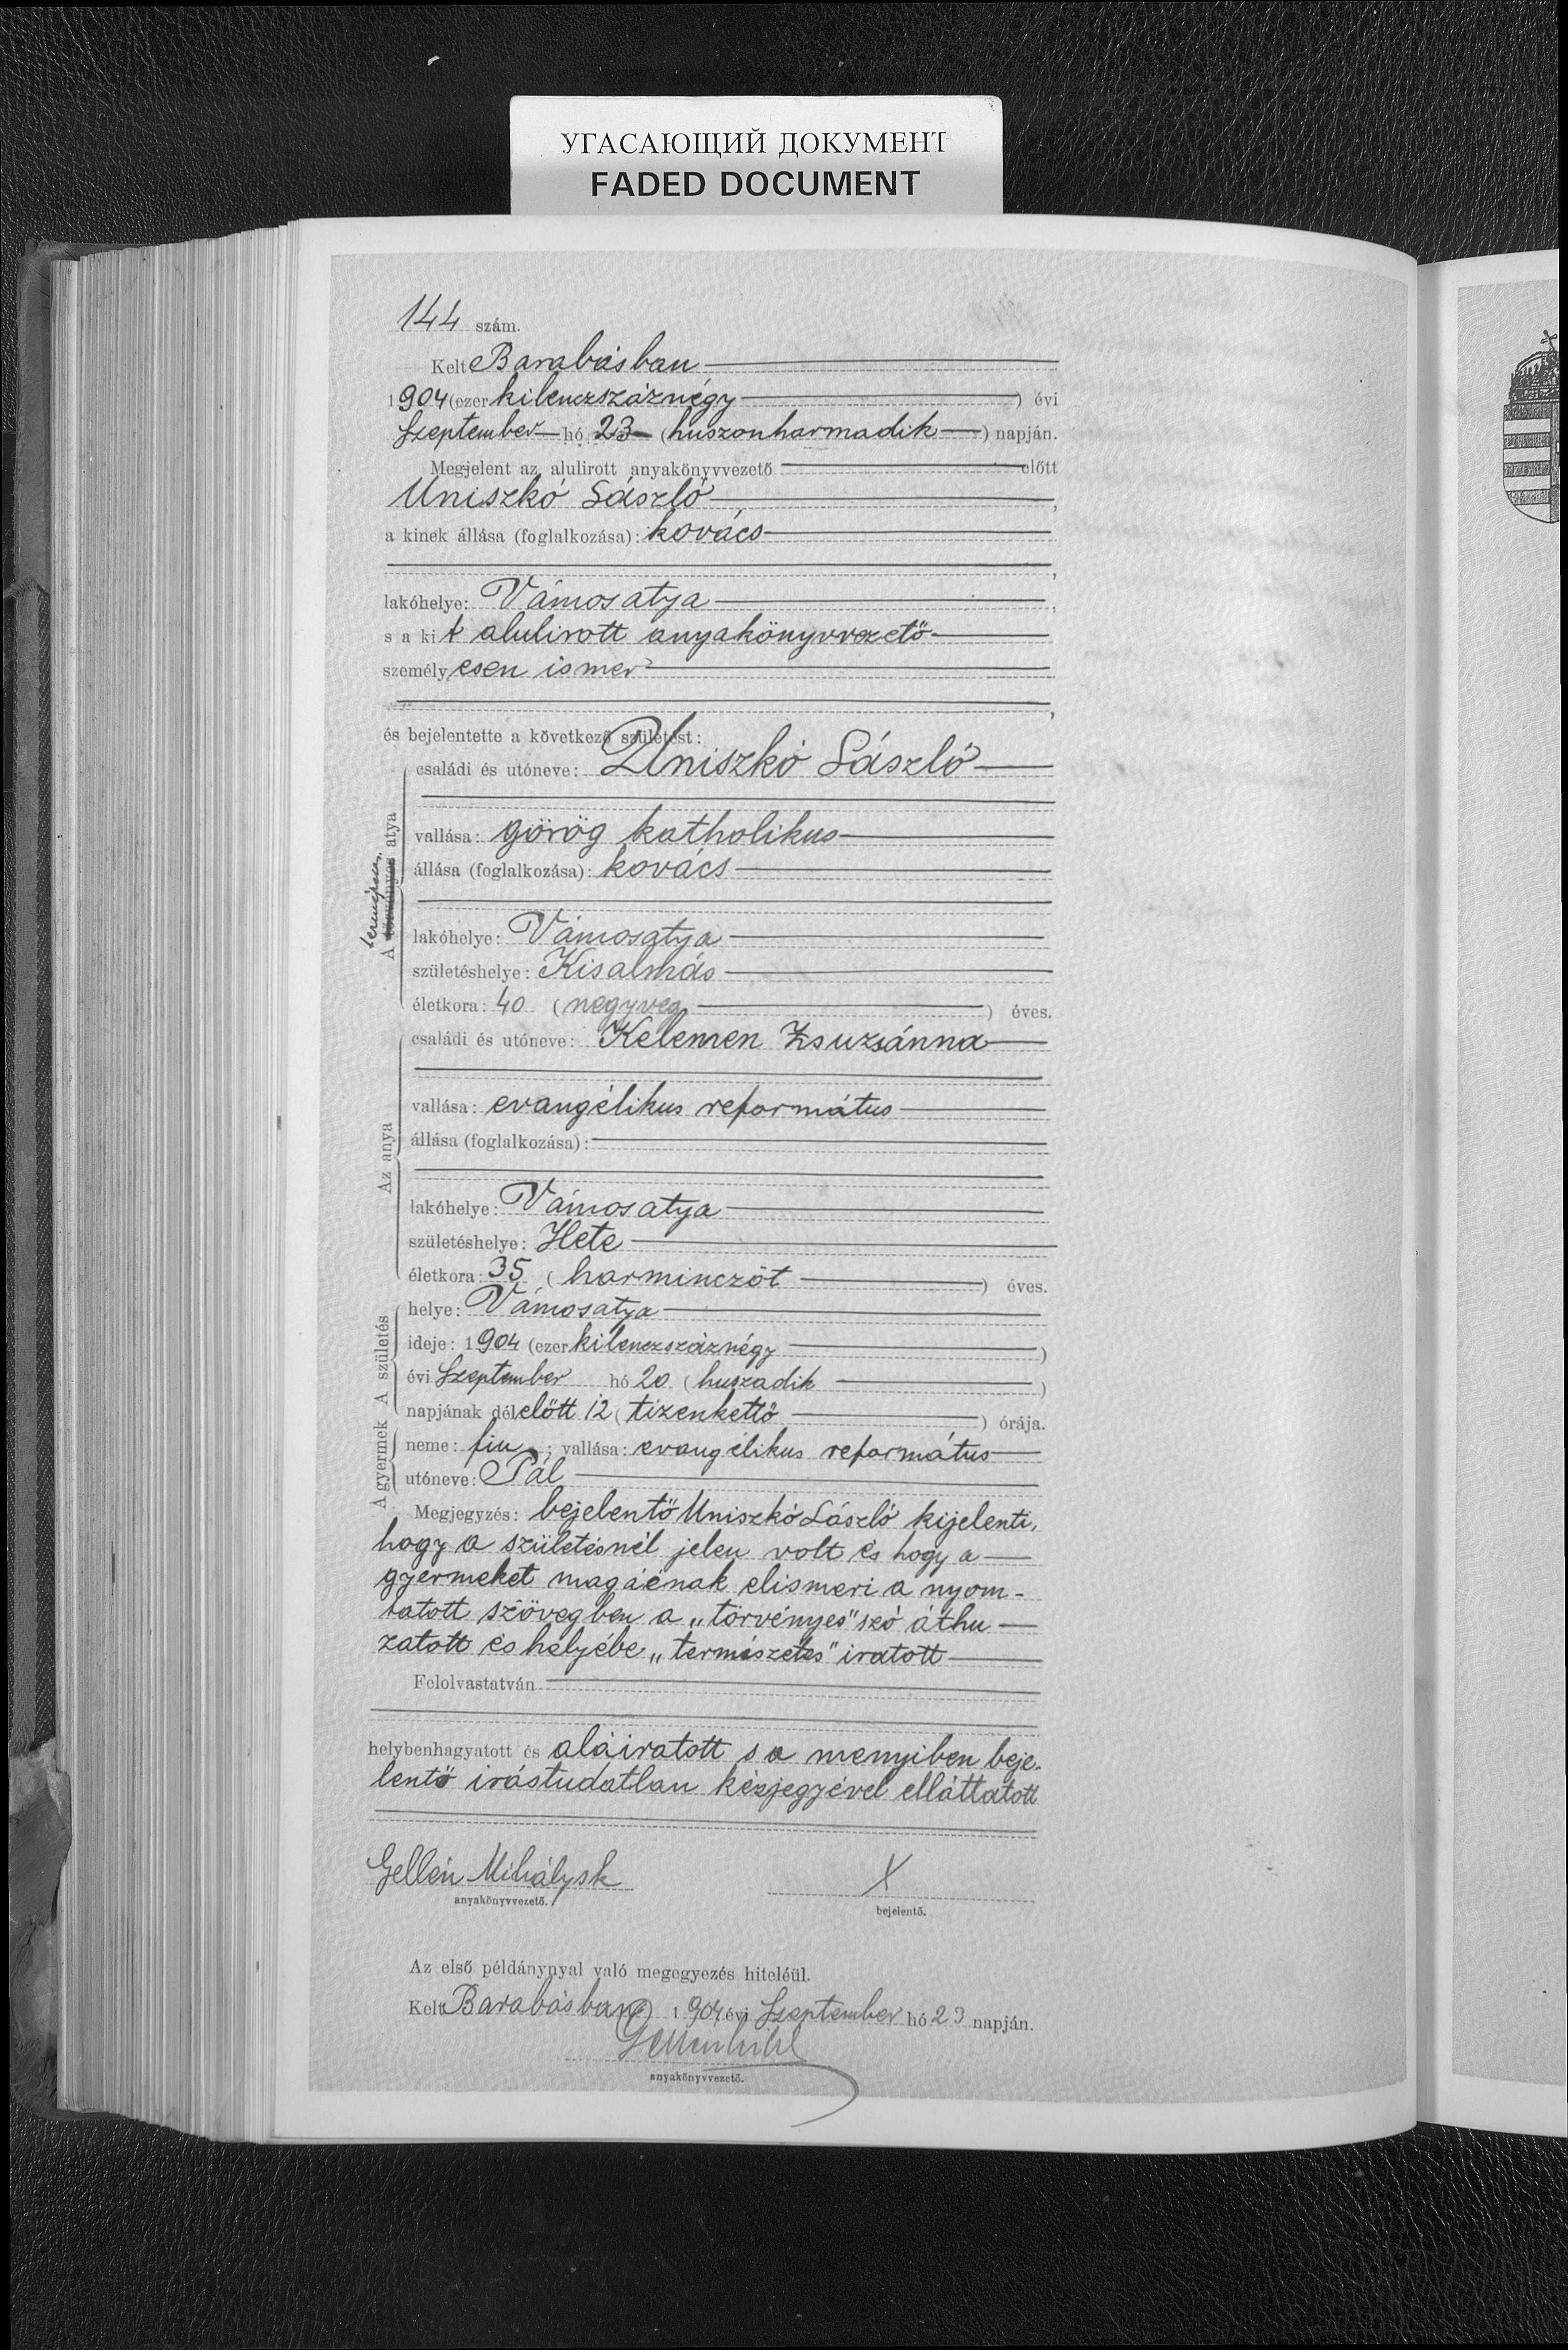 УГАСАЮЩИЙ ДОКУМЕНТ
FADED DOCUMENT
144 szám.
Kelt Barabásban
1904 (ezer kilenczszáznégy) évi
Szeptember hó 23 (huszonharmadik) napján.
Megjelent az alulirott anyakönyvvezető előtt
Uniszkó László,
a kinek állása (foglalkozása): kovács
,
lakóhelye: Vámosatya,
s a kit alulirott anyakönyvvezető
személyesen ismer
,
és bejelentette a következő születést:
A törvényes atya
családi és utóneve: Uniszkó László
vallása: görög katholikus
állása (foglalkozása): kovács
lakóhelye: Vámosatya
születéshelye: Kisalmás
életkora: 40 (negyveg) éves.
Az anya
családi és utóneve: Kelemen Zsuzsánna
vallása: evangélikus református
állása (foglalkozása):
lakóhelye: Vámosatya
születéshelye: Hete
életkora: 35 (harminczöt) éves.
A születés
helye: Vámosatya
ideje: 1904 (ezer kilenczszáznégy)
évi Szeptember hó 20 (huszadik)
napjának délelőtt 12 (tizenkettő) órája.
A gyermek
neme: fiu; vallása: evangélikus református
utóneve: Pál
Megjegyzés: bejelentő Uniszkó László kijelenti,
hogy a születésnél jelen volt és hogy a
gyermeket magáénak elismeri a nyom-
tatott szövegben a „törvényes" szó áthu
zatott és helyébe „természetes" iratott
Felolvastatván
helybenhagyatott és aláiratott s a menyiben beje-
lentő irástudatlan kézjegyével elláttatott
Gellén Mihály sk X
anyakönyvvezető. bejelentő.
Az első példánynyal való megegyezés hiteléül.
Kelt Barabásban 1904 évi Szeptember hó 23 napján.
anyakönyvvezető.